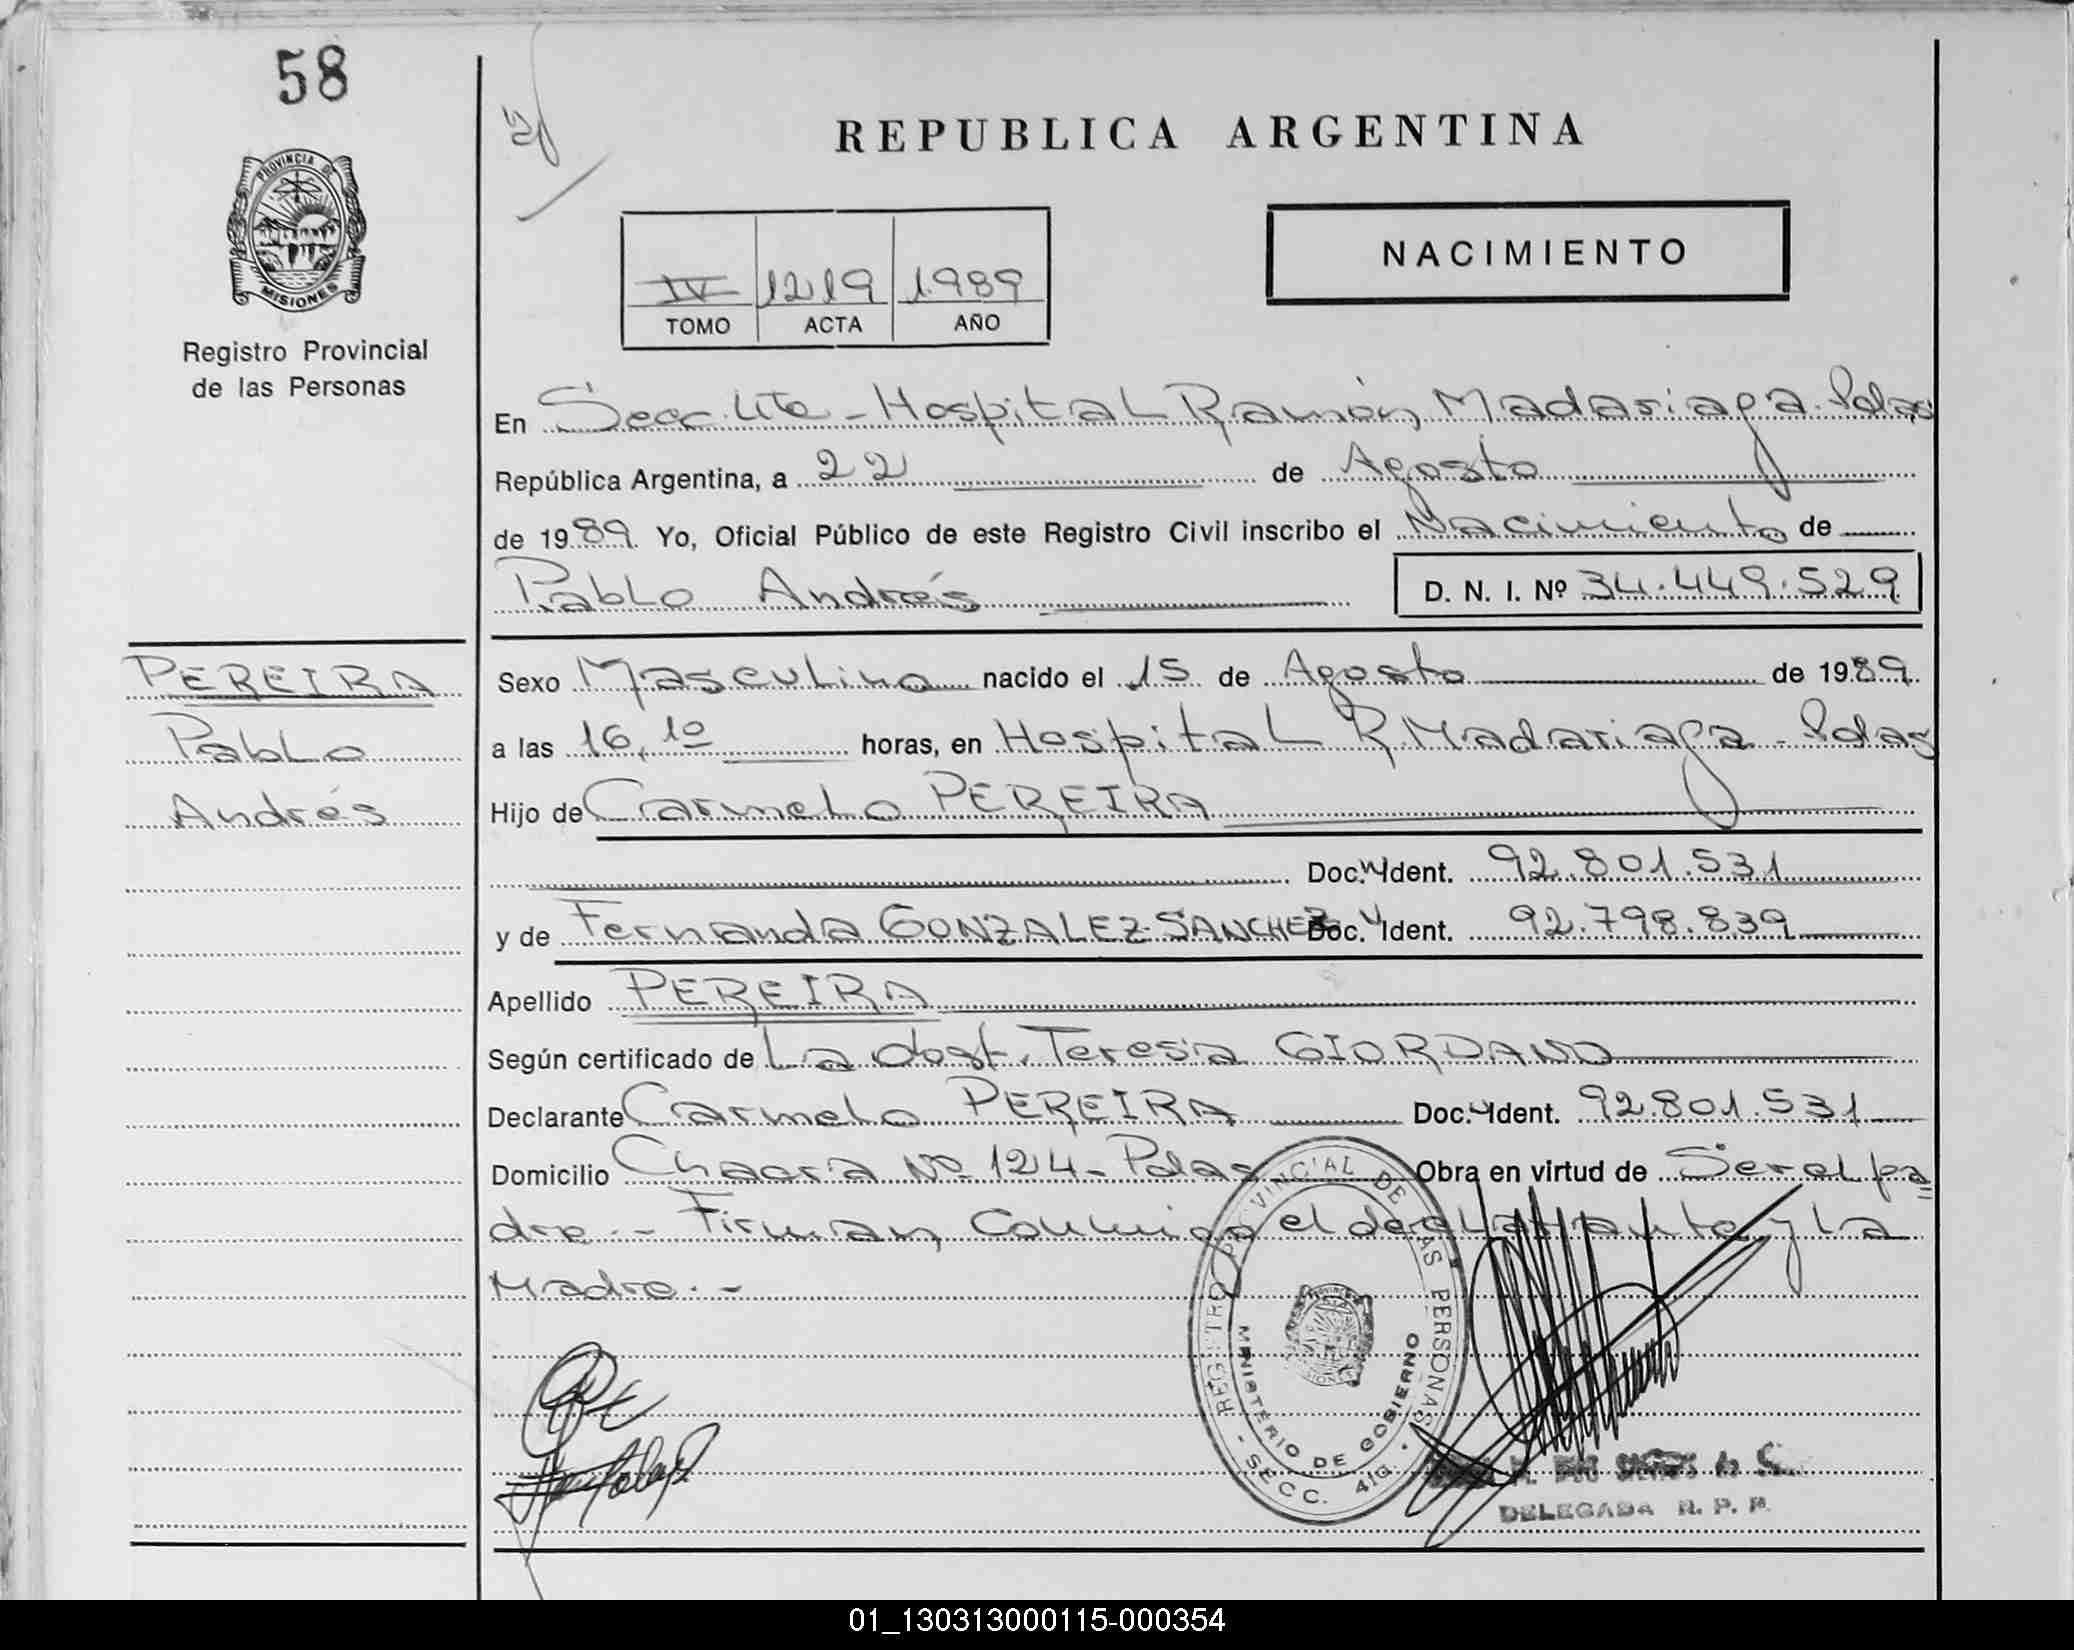 58
REPUBLICA ARGENTINA
PROVINCIA DE
MISIONES
Registro Provincial
de las Personas
NACIMIENTO
IV 1219 1989
TOMO ACTA AÑO
En Secc. 4ta - Hospital Ramón Madariaga. Pdas
República Argentina, a 22 de Agosto
de 1989. Yo, Oficial Público de este Registro Civil inscribo el Nacimiento de
Pablo Andrés D. N. I. Nº 34.449.529
PEREIRA
Pablo
Andrés
Sexo Masculino nacido el 15 de Agosto de 1989.
a las 16,10 horas, en Hospital R. Madariaga - Pdas
Hijo de Carmelo PEREIRA
Doc. Ident. 92.801.531
y de Fernanda GONZALEZ SANCHEZ Doc. Ident. 92.798.839
Apellido PEREIRA
Según certificado de La obst. Teresa GIORDANO
Declarante Carmelo PEREIRA Doc. Ident. 92.801.531
Domicilio Chacra Nº 124 - Pdas Obra en virtud de Ser el pa=
dre.- Firman conmigo el declarante y la
Madre.-
REGISTRO PROVINCIAL DE LAS PERSONAS
MINISTERIO DE GOBIERNO
- SECC. 4ta. -
DELEGADA R. P. P.
01_130313000115-000354